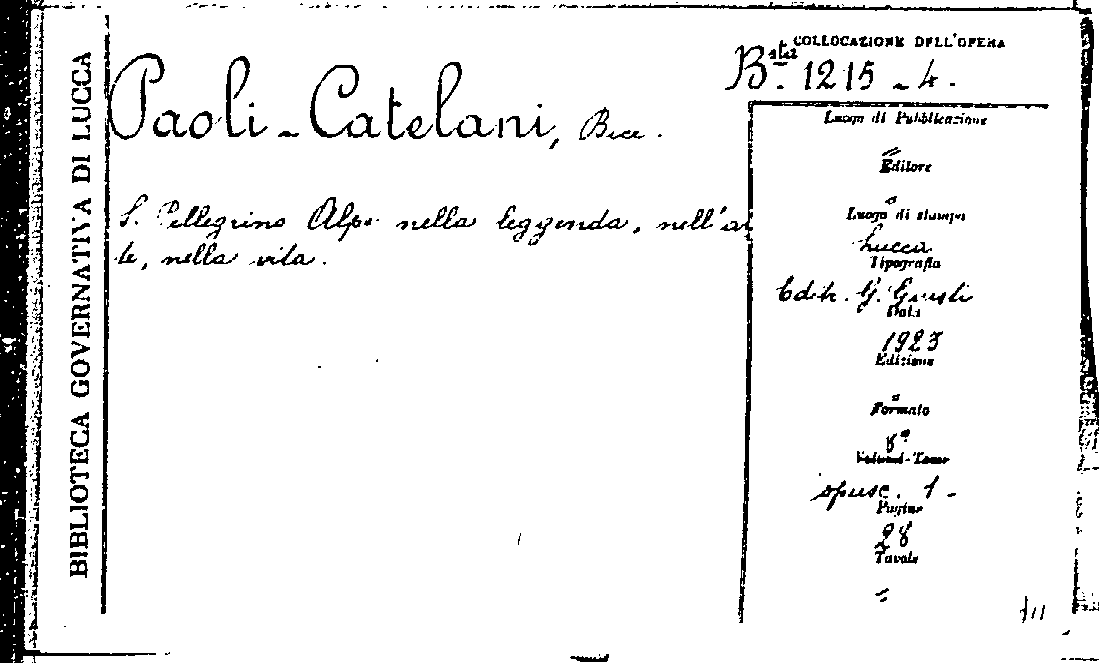 BIBLIOTECA GOVERNATIVA DI LUCCA
COLLOCAZIONE DELL'OPERA
B.sta 1215 - 4.
Paoli-Catelani, Bice.
S. Pellegrino Alpe nella leggenda, nell'ar
te, nella vita.
Luogo di Pubblicazione
"
Editore
"
Luogo di stampa
Lucca
Tipografia
Edit. G. Giusti
Data
1923
Edizione
"
Formato
8°
Volumi-Tomo
opusc. 1 -
Pagine
28
Tavole
"